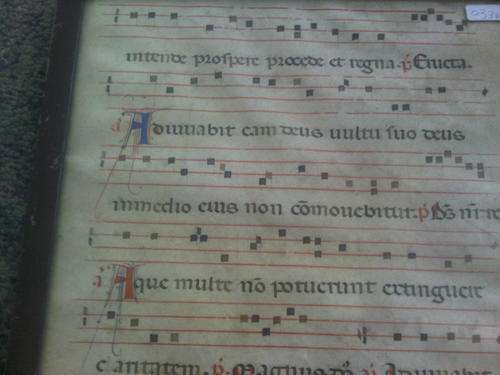 intende prospere procede et regna. p Eructa.
a Adiuuabit eam deus uultu suo deus
in medio eius non cōmouebitur. p Ds nr re
a Aque multe nō potuerunt extinguere
caritatem. p. Magnus dō a Adiuuabit